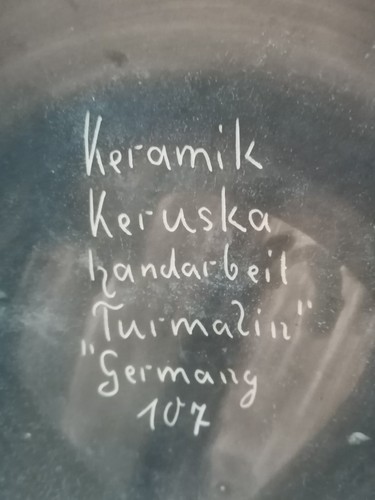 Keramik
Keruska
handarbeit
Turmalin"
"Germany
107